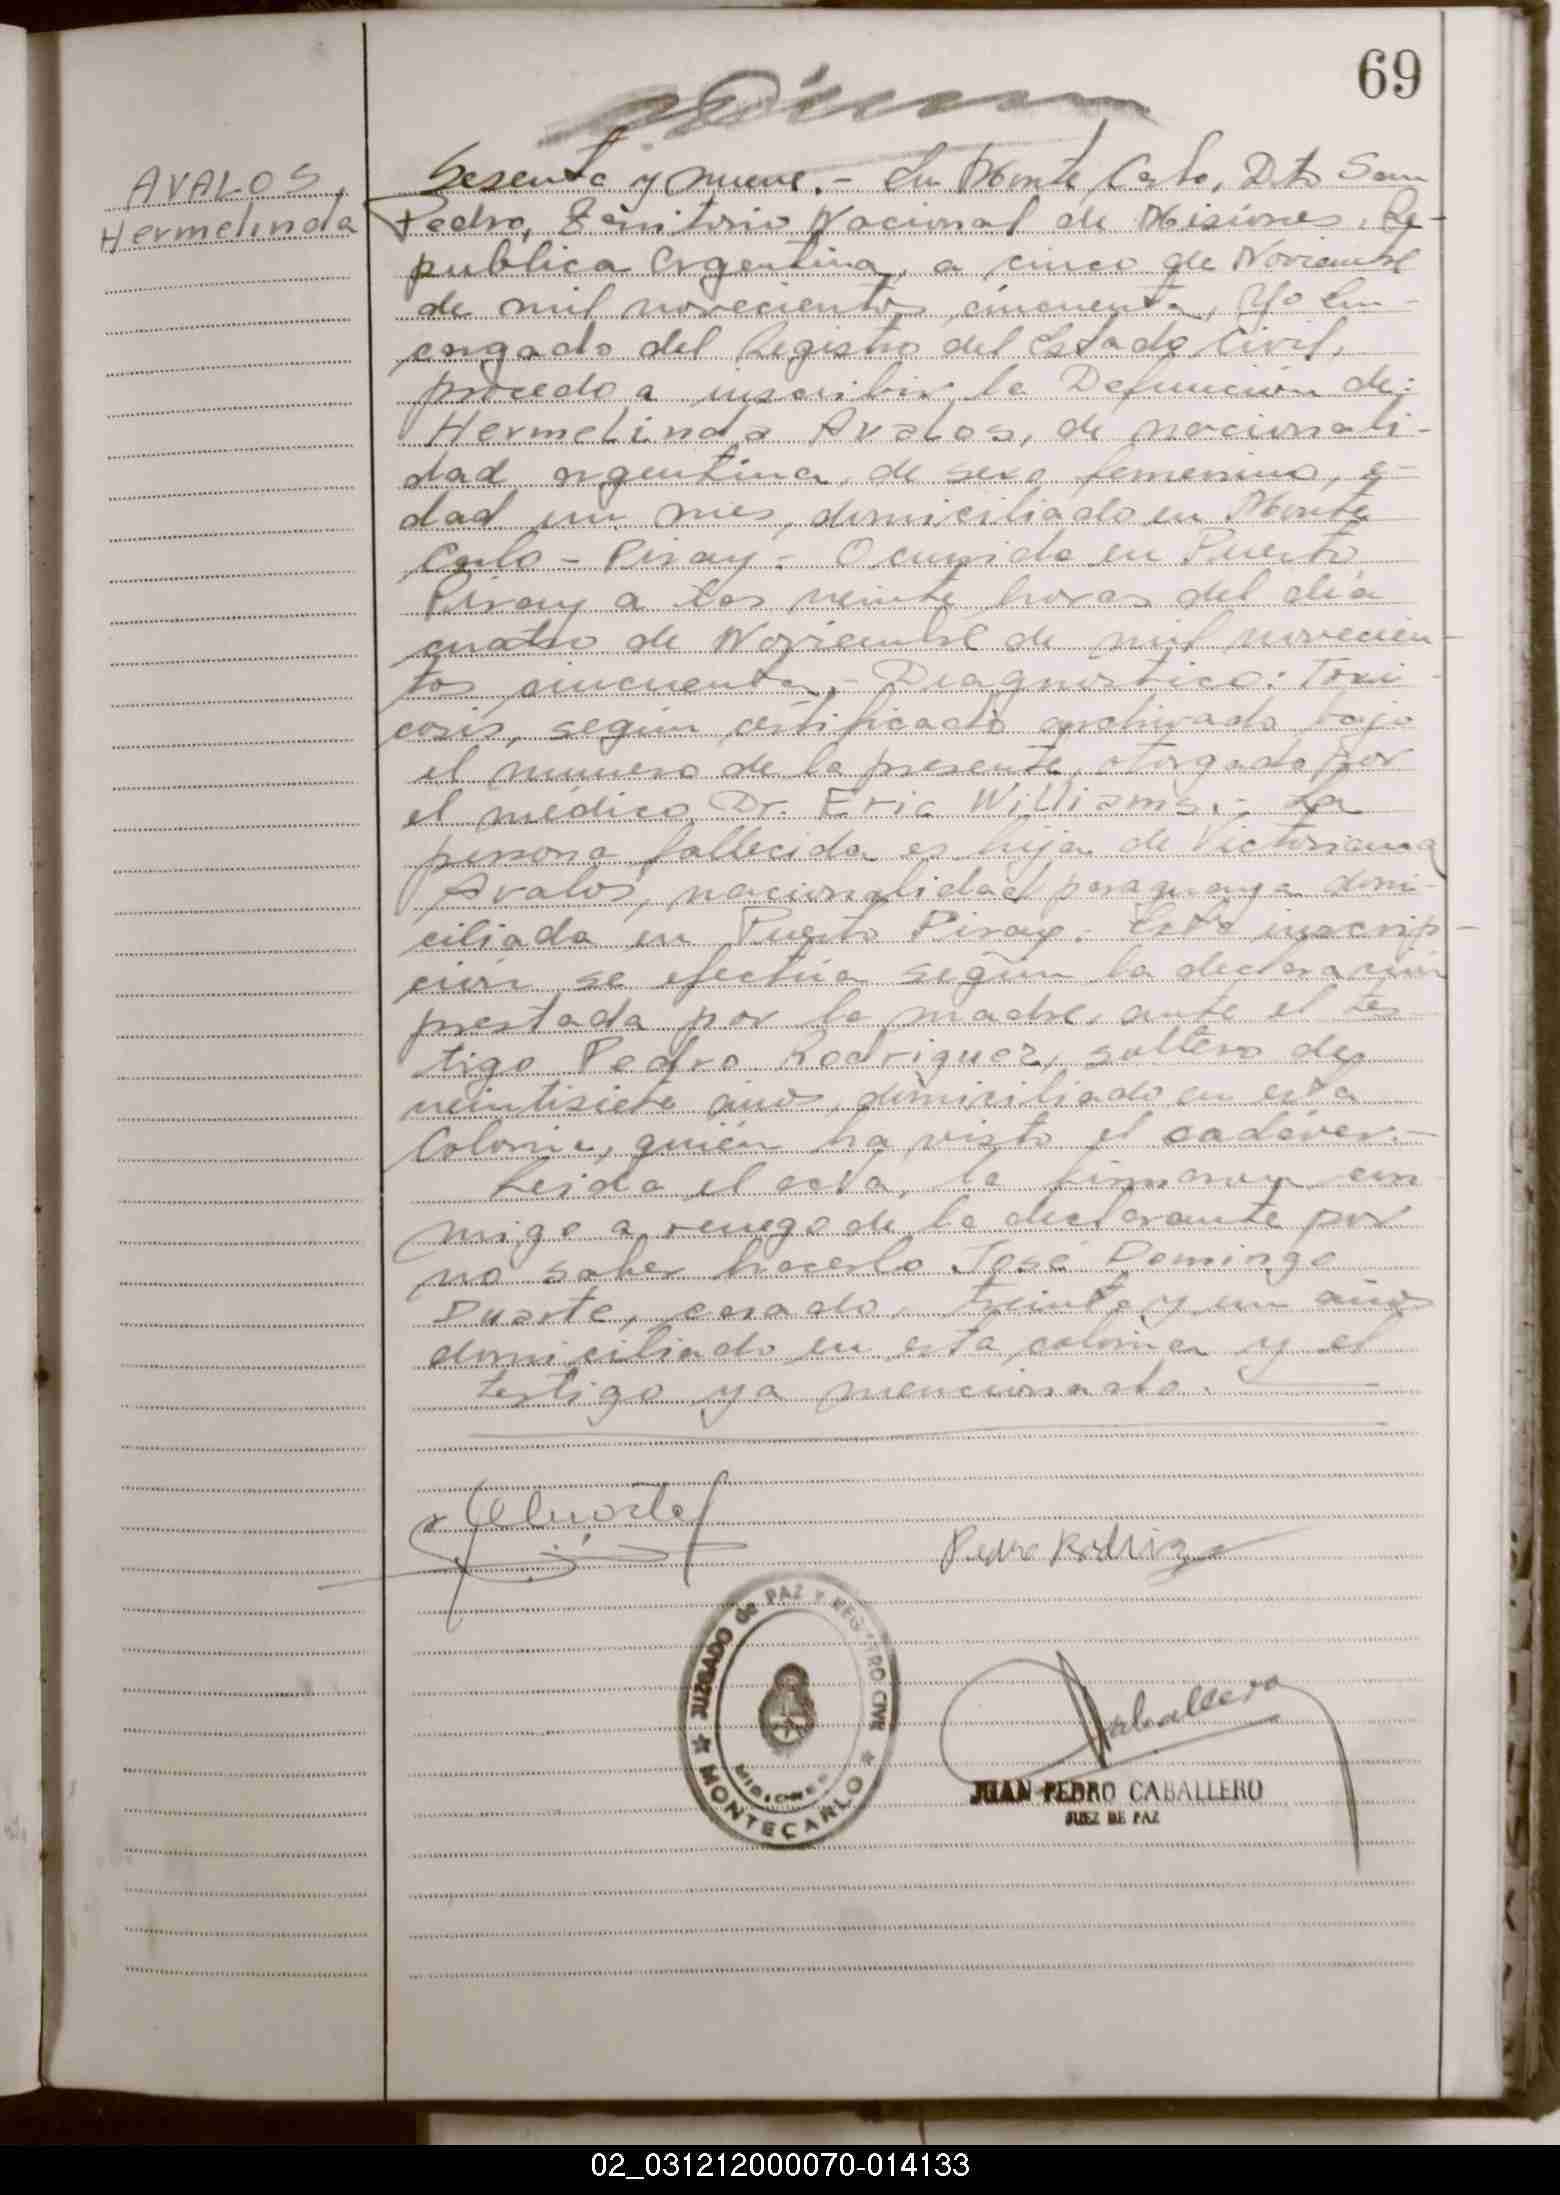 69
AVALOS,
Hermelinda
Sesenta y nueve.- En Monte Carlo, Dto San
Pedro, Territorio Nacional de Misiones, Re-
publica Argentina, a cinco de Noviembre
de mil novecientos cincuenta, Yo En-
cargado del Registro del Estado Civil,
procedo a inscribir la Defunción de:
Hermelinda Avalos, de nacionali-
dad argentina, de sexo femenino, e-
dad un mes, domiciliado en Monte
Carlo - Piray - Ocurrida en Puerto
Piray a las veinte horas del día
cuatro de Noviembre de mil novecien-
tos cincuenta.- Diagnóstico: Toxi-
cosis, según certificado archivado bajo
el numero de la presente, otorgado por
el médico Dr. Eric Williams.- La
persona fallecida es hija de Victoriana
Avalos, nacionalidad paraguaya domi-
ciliada en Puerto Piray. Esta inscrip-
ción se efectúa según la declaración
prestada por la madre, ante el tes-
tigo Pedro Rodriguez, soltero de
veintisiete años, domiciliado en esta
Colonia, quién ha visto el cadáver.-
Leida el acta, la firmaron con-
migo a ruego de la declarante por
no saber hacerlo José Domingo
Duarte, casado, treinta y un años
domiciliado en esta colonia y el
testigo ya mencionado.
JDuarte
Pedro Rodrigz
JUZGADO de PAZ Y REGISTRO CIVIL
MISIONES
MONTECARLO
Caballero
JUAN PEDRO CABALLERO
JUEZ DE PAZ
02_031212000070-014133